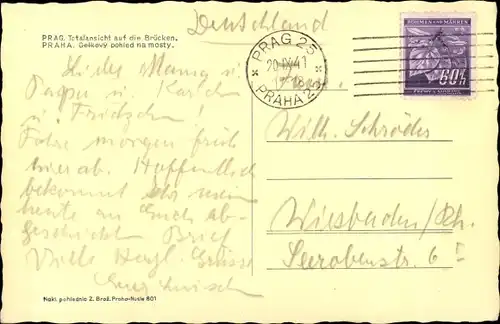 Deutschland
PRAG. Totalansicht auf die Brücken.
PRAHA. Celkový pohled na mosty.
PRAG 25
20.IX.41
PRAHA 25
BÖHMEN UND MÄHREN
60h
ČECHY A MORAVA
Mama u
Papa u. Karlchen
u Fritzchen!
Fahre morgen früh
hier ab. Hoffentlich
bekommt Ihr mein
heute an Euch ab-
geschickt Brief
Viele Herzl. Grüsse
Euer
Wilh. Schröder
Wiesbaden/Rh.
Seerobenstr. 6
Nakl. pohlednic Z. Brož. Praha-Nusle 601